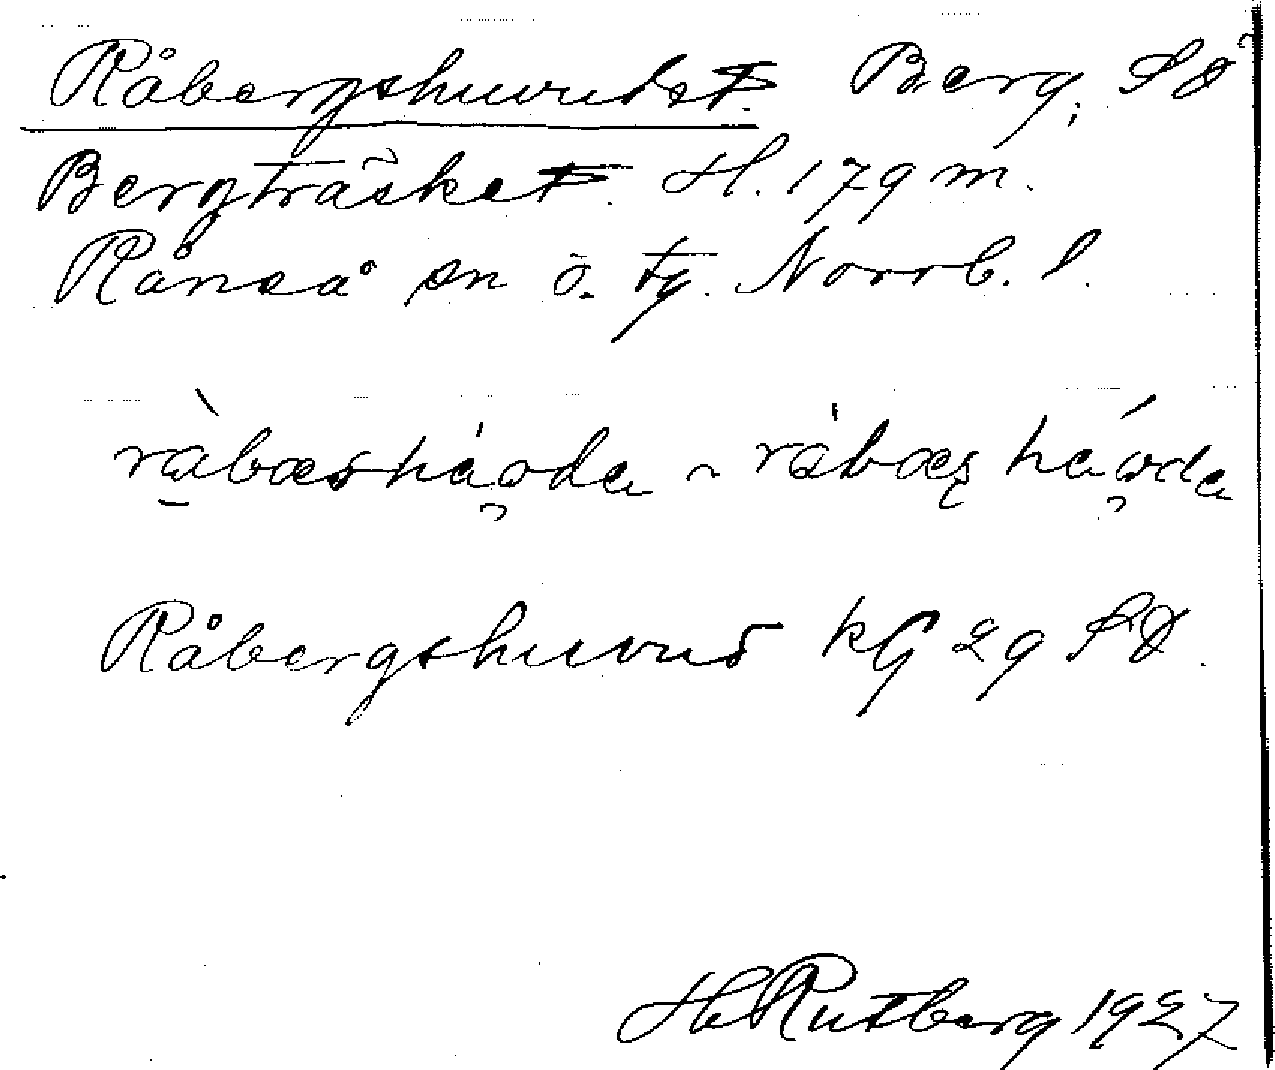 Råbergshuvudet. Berg, SO
Bergträsket. H. 179 m.
Råneå sn ö. tg. Norrb. l.
ràbæshávda ~ ràbæs hávda
Råbergshuvud kG 29 SO.
H Rutberg 1927